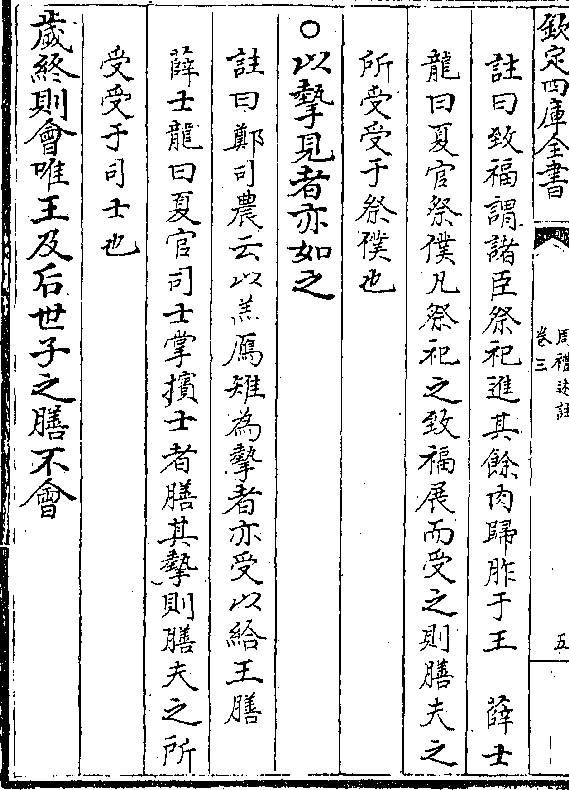 欽定四庫全書
周禮述註
卷三
五
註曰致福謂諸臣祭祀進其餘肉歸胙于王　薛士
龍曰夏官祭僕凡祭祀之致福展而受之則膳夫之
所受受于祭僕也
○以摯見者亦如之
註曰鄭司農云以羔鴈雉為摯者亦受以給王膳
薛士龍曰夏官司士掌擯士者膳其摯則膳夫之所
受受于司士也
歲終則會唯王及后世子之膳不會